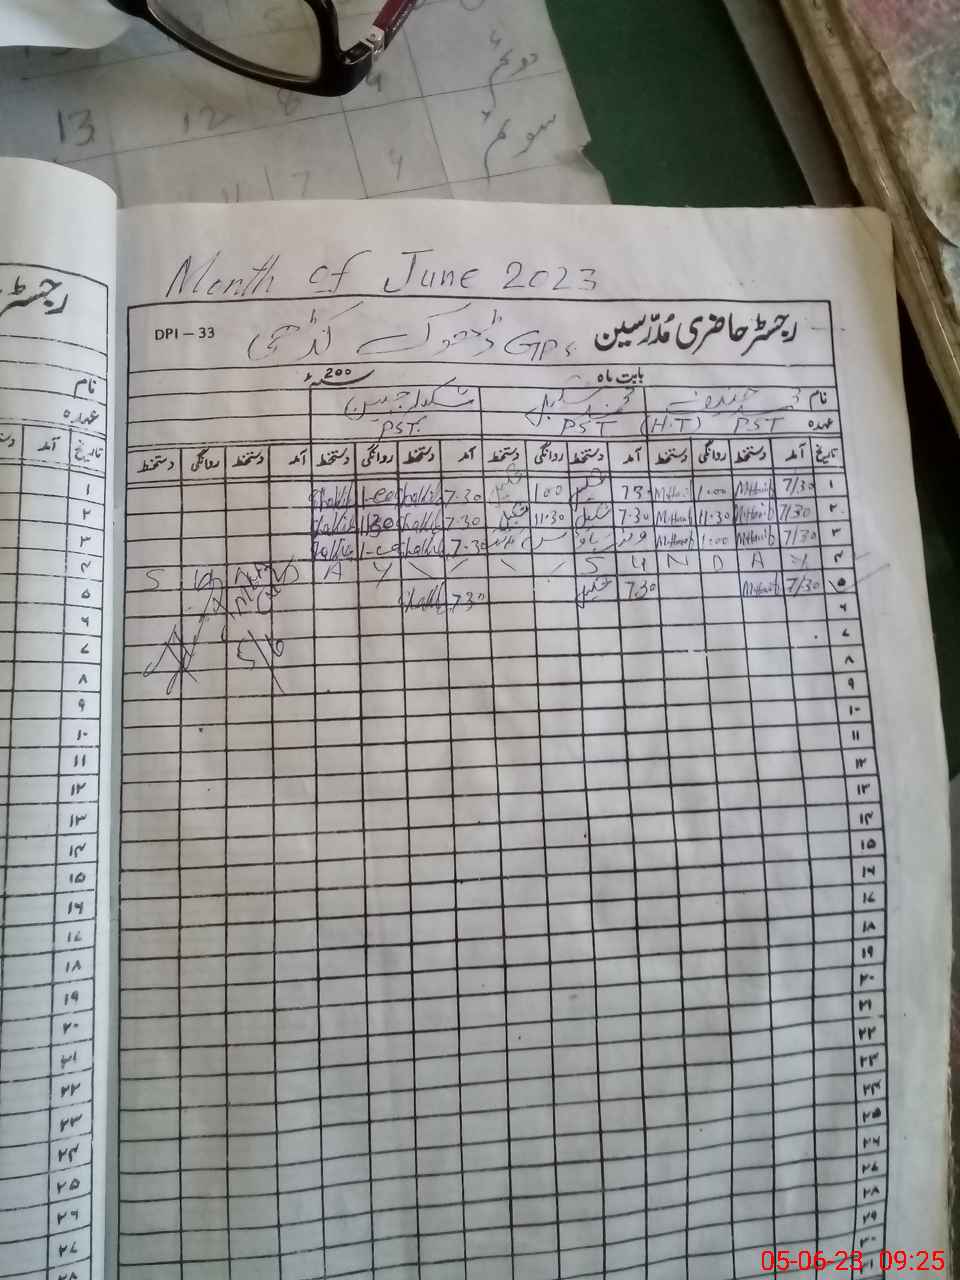 دوئم
4 8 12 13
سوئم
4 7 11
Month of June 2023
رجسٹر حاضری مُدرّسین
GPS ڈھوک
DPI – 33
بابت ماہ
200
نام محمد حنیف محمد شکیل
عہدہ PST (H.T) PST PST
تاریخ آمد دستخط روانگی دستخط آمد دستخط روانگی دستخط آمد دستخط روانگی دستخط آمد دستخط روانگی دستخط
۱ 7/30 M.Hanif 1:00 M.Hanif 7.30 شکیل 1.00 شکیل 7.30 1-00
۲ 7/30 M.Hanif 11.30 M.Hanif 7.30 شکیل 11.30 شکیل 7.30 1130
۳ 7/30 M.Hanif 1:00 M.Hanif 7.30 1-00
۴ S U N D A Y S U N D A Y
۵ 7/30 M.Hanif 7.30 شکیل 7.30
5/6
۶
۷
۸
۹
۱۰
۱۱
۱۲
۱۳
۱۴
۱۵
۱۶
۱۷
۱۸
۱۹
۲۰
۲۱
۲۲
۲۳
۲۴
۲۵
۲۶
۲۷
۲۸
۲۹
۳۰
رجسٹر
نام
عہدہ
تاریخ آمد
۱
۲
۳
۴
۵
۶
۷
۸
۹
۱۰
۱۱
۱۲
۱۳
۱۴
۱۵
۱۶
۱۷
۱۸
۱۹
۲۰
۲۱
۲۲
۲۳
۲۴
۲۵
۲۶
۲۷
۲۸
05-06-23 09:25